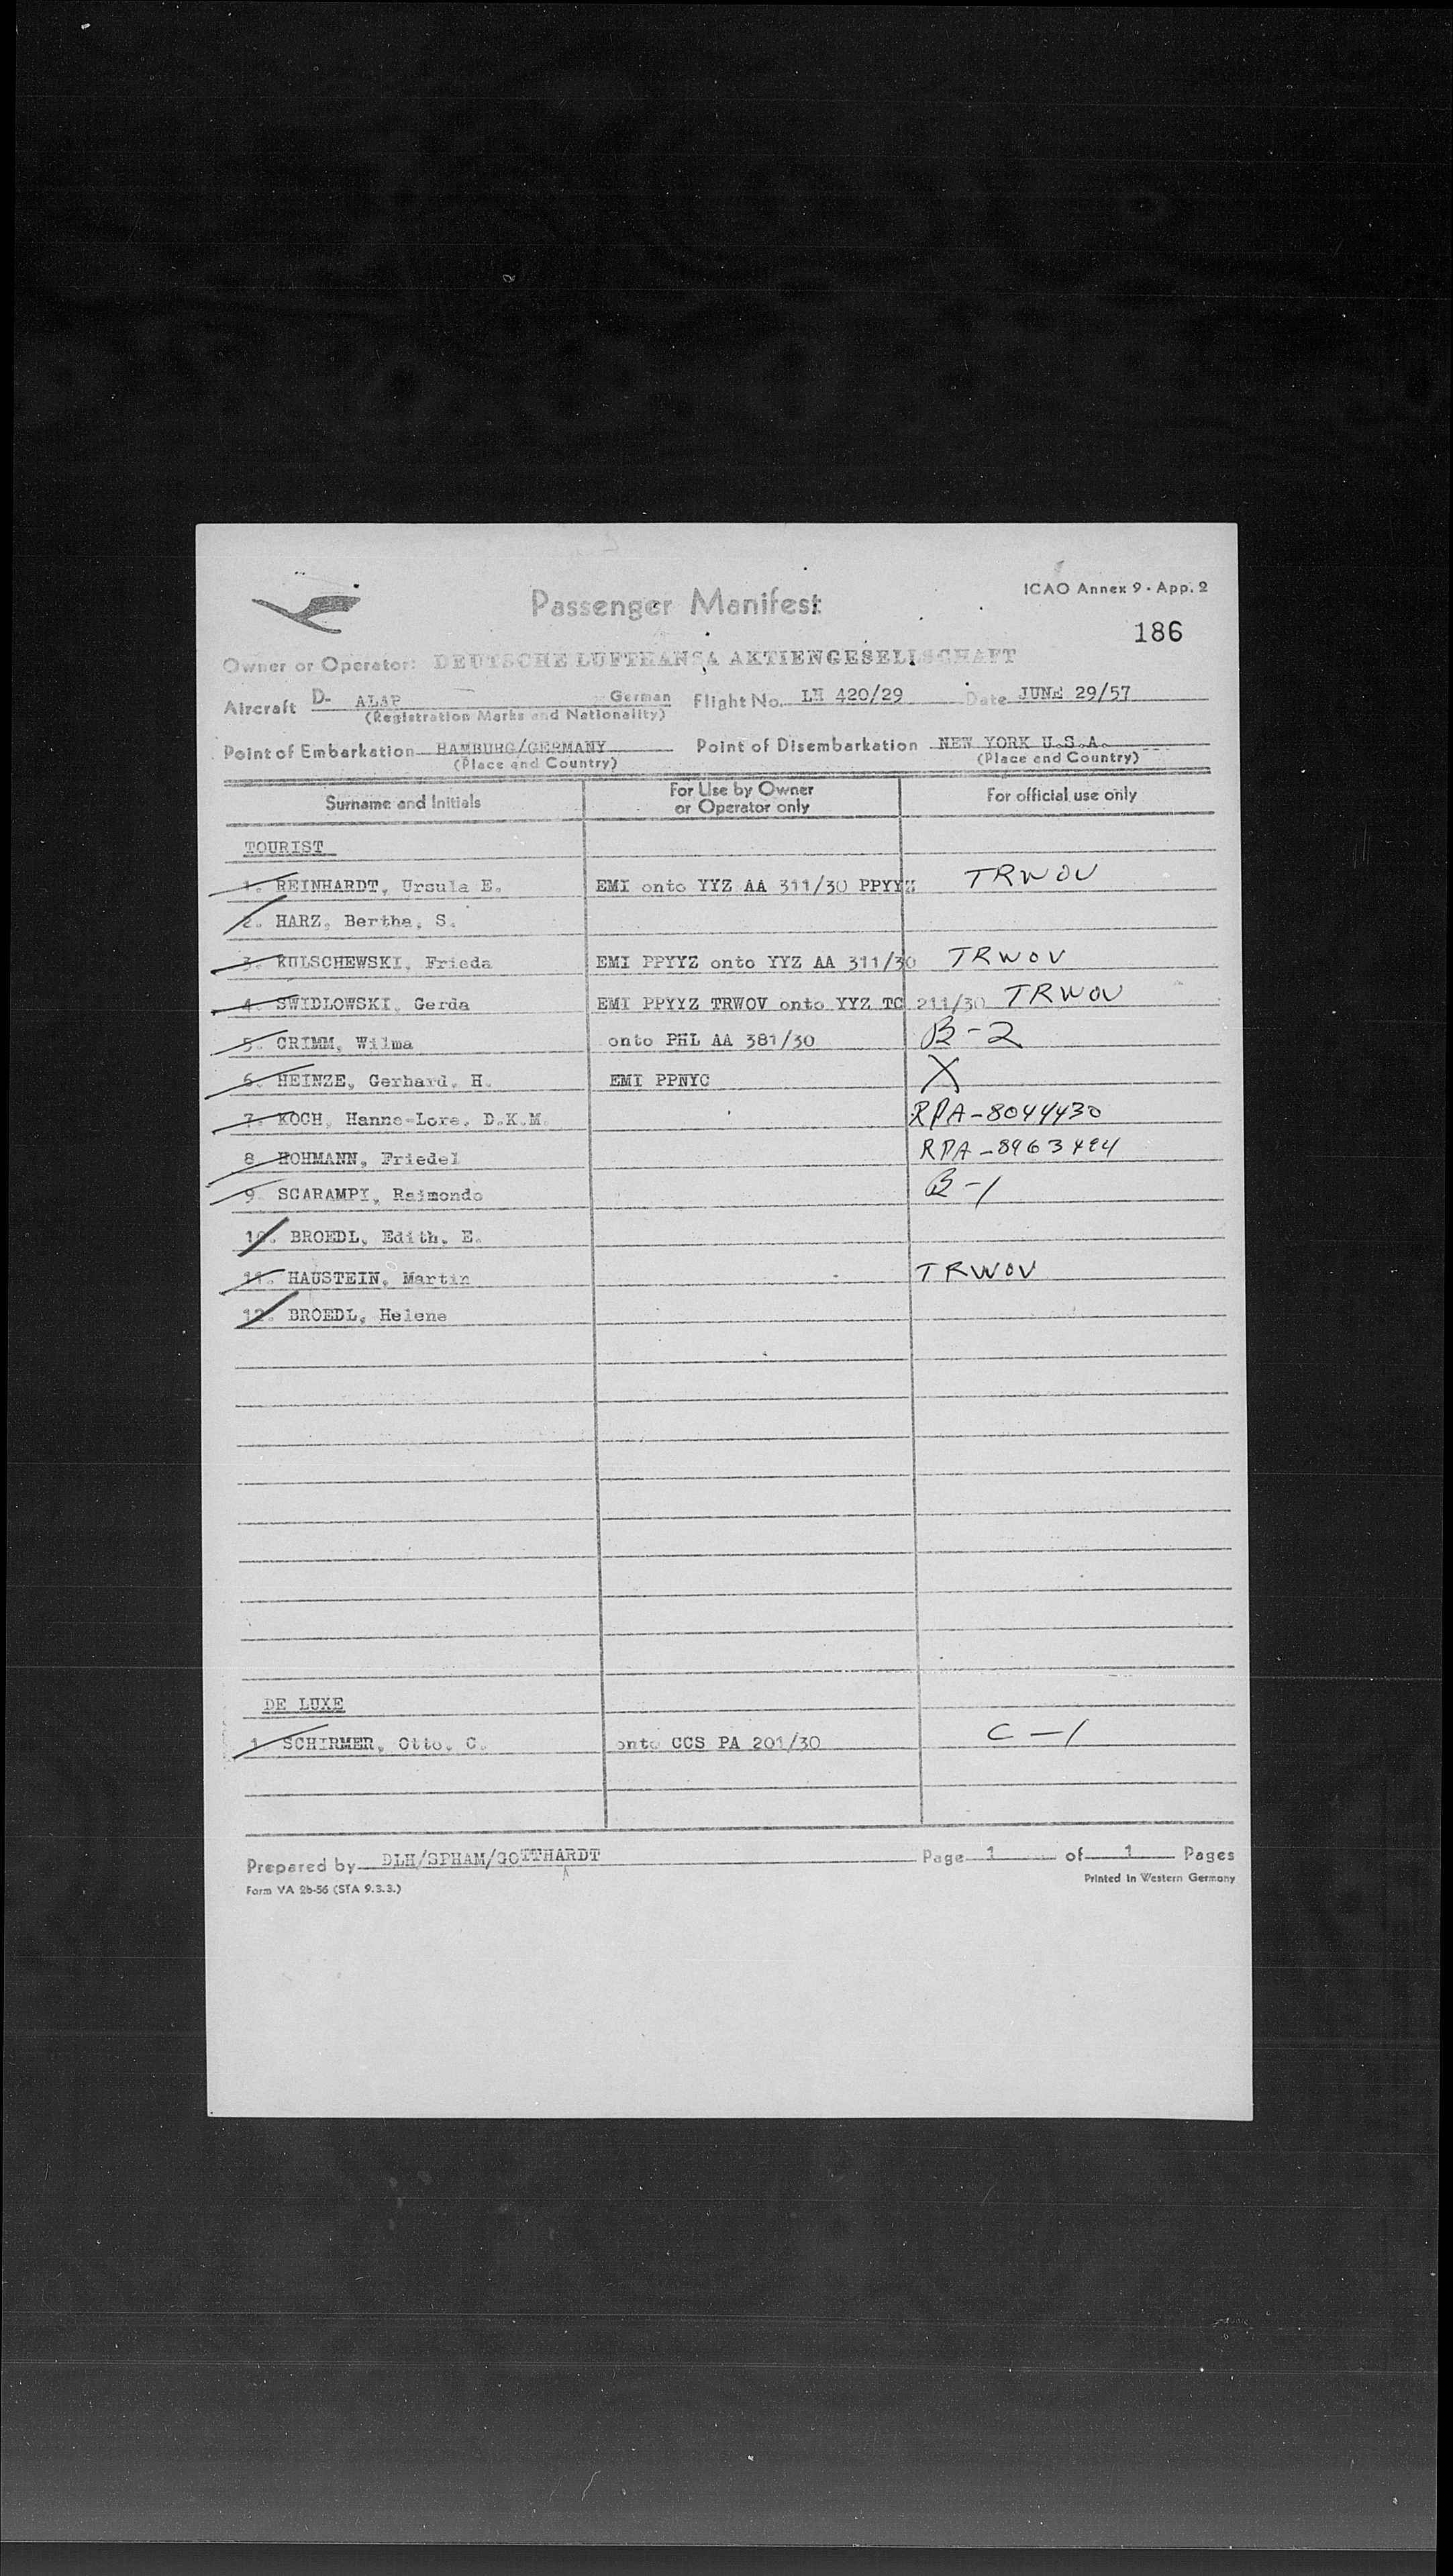 Passenger Manifest
ICAO Annex 9 - App. 2
186
Owner or Operator: DEUTSCHE LUFTHANSA AKTIENGESELLSCHAFT
Aircraft D- ALAP German Flight No. LH 420/29 Date JUNE 29/57
(Registration Marks and Nationality)
Point of Embarkation HAMBURG/GERMANY Point of Disembarkation NEW YORK U.S.A.
(Place and Country) (Place and Country)
Surname and Initials For Use by Owner or Operator only For official use only
TOURIST
1. REINHARDT, Ursula E. EMI onto YYZ AA 311/30 PPYYZ TRWOV
2. HARZ, Bertha, S.
3. KULSCHEWSKI, Frieda EMI PPYYZ onto YYZ AA 311/30 TRWOV
4. SWIDLOWSKI, Gerda EMI PPYYZ TRWOV onto YYZ TC 211/30 TRWOV
5. GRIMM, Wilma onto PHL AA 381/30 B-2
6. HEINZE, Gerhard, H. EMI PPNYC X
7. KOCH, Hanne-Lore, D.K.M. RPA-8044430
8. HOHMANN, Friedel RPA-8963494
9. SCARAMPI, Raimondo B-1
10. BROEDL, Edith, E.
11. HAUSTEIN, Martin TRWOV
12. BROEDL, Helene
DE LUXE
1. SCHIRMER, Otto, C. onto CCS PA 201/30 C-1
Prepared by DLH/SPHAM/GOTTHARDT Page 1 of 1 Pages
Form VA 2b-56 (STA 9.3.3.) Printed in Western Germany